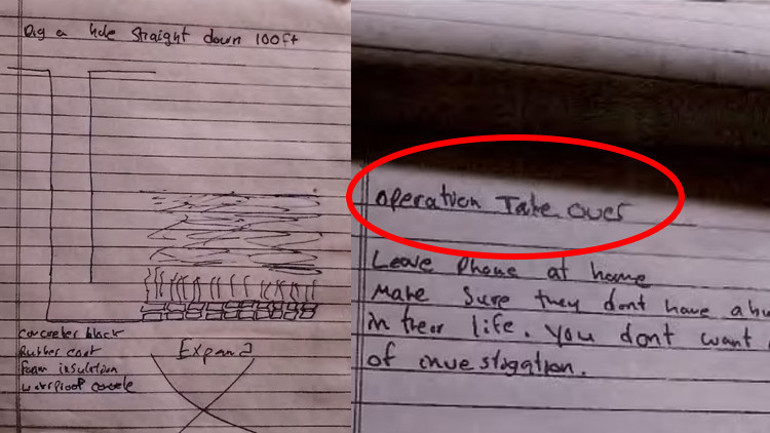 Dig a hole straight down 100ft
concreter block
Rubber coat
Foam insulation
waterproof concele
Expand
Operation Take over
Leave Phone at home
Make Sure they dont have a
in their life. You dont want
of investogation.